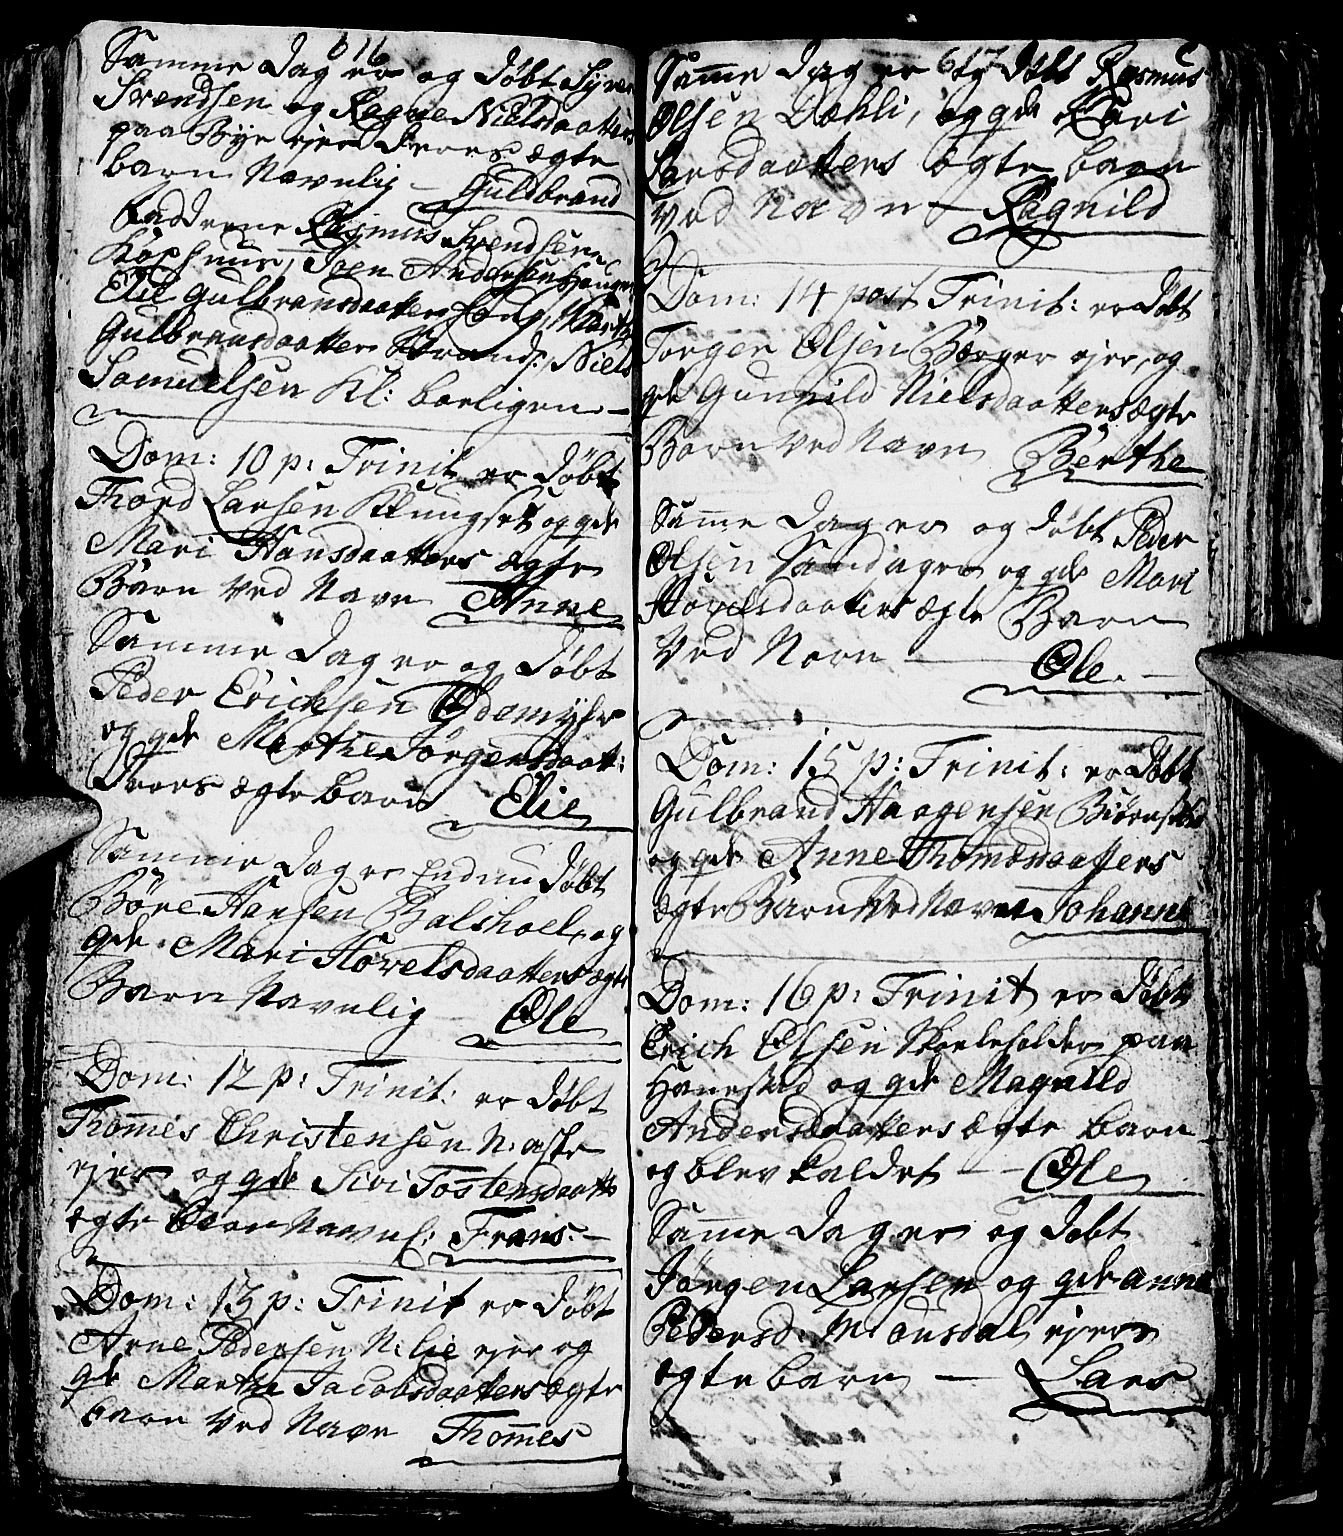 616
Samme dag er og døbt Syver
Svendsen og Ragne Nielsdaatters
paa Bye ejer deres ægte
barn Navnlig — Guldbrand
fadderne Rasmus Svendsen
Kophuus, Joen Andersen Haugen
Elie Gulbransdaatter Houg, Marthe
Gulbransdaatter Strand: Niels
Samuelsen Kl: boeligen —
Dom: 10 p: Trinit er døbt
Thord Larsen Kluugset og gde
Mari Hansdaatters ægte
Barn Ved Navn Anne
Samme dag er og døbt
Peder Erichsen Ødemyhr
og gde Marthe Jørgensdaatt:
Deres ægte barn Elie
Samme dag er Endnu døbt
Børe Hansen Balshoel, og
gde Mari Hovelsdaatters ægte
Barn Navnlig Ole
Dom: 12 p: Trinit: er døbt
Thom̄es Christensen N: aste
ejer og gde Sivi Tostensdaatt
ægte Barn Navnl: Frans —
Dom: 13 p: Trinit er døbt
Arne Pedersen N: lie ejer og
gde Marthe Jacobsdaatters ægte
barn Ved Navn Thom̄es
617
Sam̄e dag er og døbt Rasmus
Olsen Dæhli, og gde Kari
Larsdaatters ægte barn
Ved Navn — Ragnild
Dom: 14 post Trinit: er døbt
Torger Olsen Berger ejer, og
gde Gunnild Nielsdaatters ægte
Barn Ved Navn Berthe
Sam̄e dag er og døbt Peder
Olsen Sandager og gde Mari
Hovelsdaatters ægte Barn
Ved Navn — Ole. —
Dom: 15 p: Trinit: er døbt
Gulbrand Haagensen Biørnst
og gde Anne Thomesdaatters
ægte Barn Ved Navn Johann
Dom: 16 p: Trinit er døbt
Erich Olsen Skoleholder paa
Hanestad og gde Magnild
Andersdaatters ægte barn
og blev kaldet — — Ole
Sam̄e dag er og døbt
Jørgen Larsen og gde Anne
Pedersd: Monsdal ejers
ægte barn — Lars